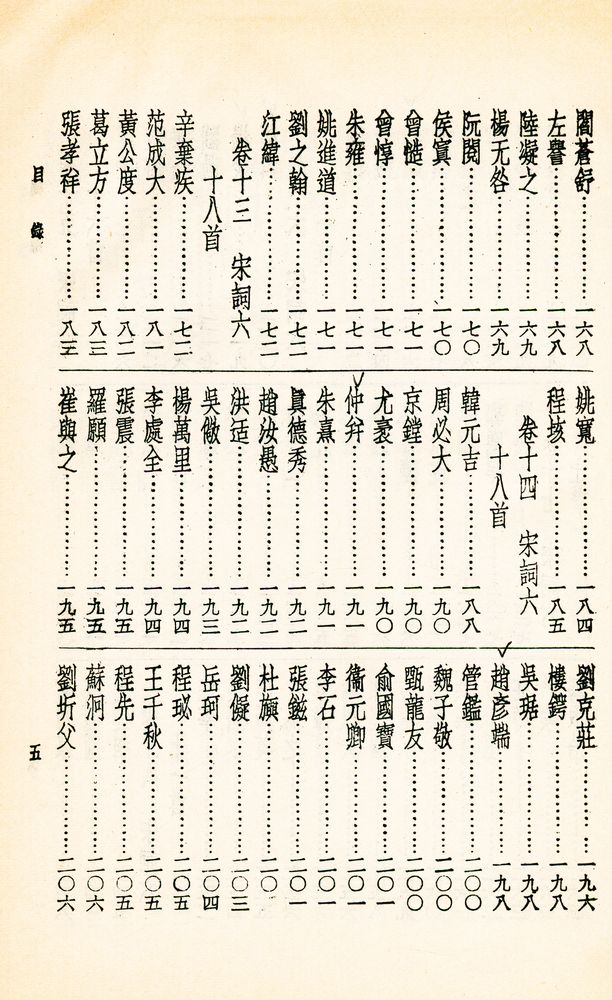 閻蒼舒……………一六八
左譽……………一六八
陸凝之……………一六九
楊无咎……………一六九
阮閱……………一七〇
侯寘……………一七〇
曾慥……………一七一
曾惇……………一七一
朱雍……………一七一
姚進道……………一七一
劉之翰……………一七二
江緯……………一七二
卷十三　宋詞六
十八首
辛棄疾……………一七二
范成大……………一八一
黃公度……………一八二
葛立方……………一八三
張孝祥……………一八三
姚寬……………一八四
程垓……………一八五
卷十四　宋詞六
十八首
韓元吉……………一八八
周必大……………一九〇
京鏜……………一九〇
尤袤……………一九〇
仲并……………一九一
朱熹……………一九一
眞德秀……………一九二
趙汝愚……………一九二
洪适……………一九二
吳儆……………一九三
楊萬里……………一九四
李處全……………一九四
張震……………一九五
羅願……………一九五
崔與之……………一九五
劉克莊……………一九六
樓鍔……………一九八
吳琚……………一九八
趙彥端……………一九八
管鑑……………二〇〇
魏子敬……………二〇〇
甄龍友……………二〇〇
俞國寶……………二〇一
衞元卿……………二〇一
李石……………二〇一
張鎡……………二〇一
杜旟……………二〇
劉儗……………二〇三
岳珂……………二〇四
程珌……………二〇五
王千秋……………二〇五
程先……………二〇五
蘇泂……………二〇六
劉圻父……………二〇六
目錄
五